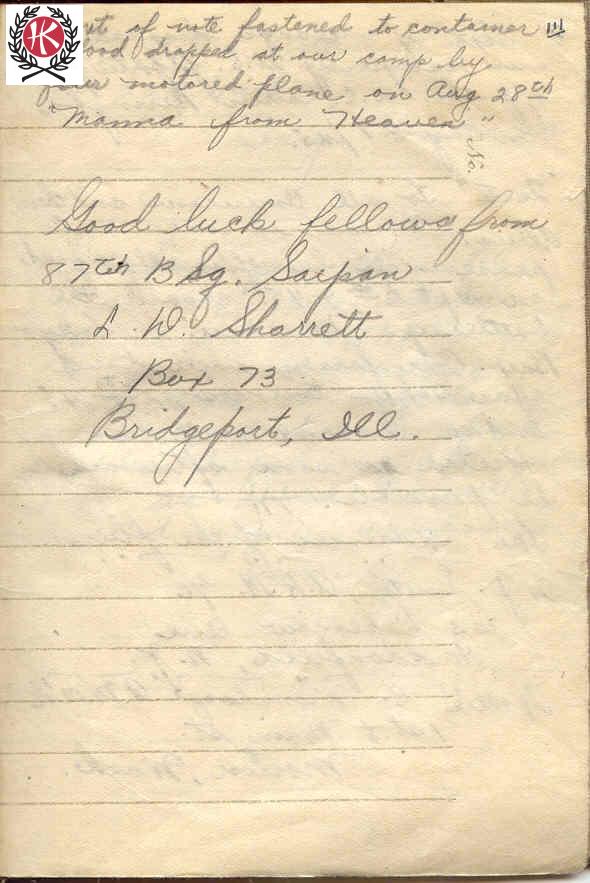 HK
rt of note fastened to container III
ood dropped at our camp by
four motored plane on Aug 28th
"Manna from Heaven"
No.
Good luck fellows from
87th B Sq. Saipan
L. W. Sharrett
Box 73
Bridgeport, Ill.